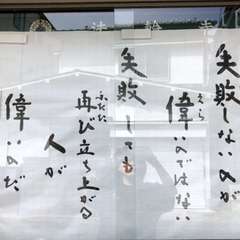 失敗しないのが
偉いのではない
失敗しても
再び立ち上がる
人が
偉いのだ